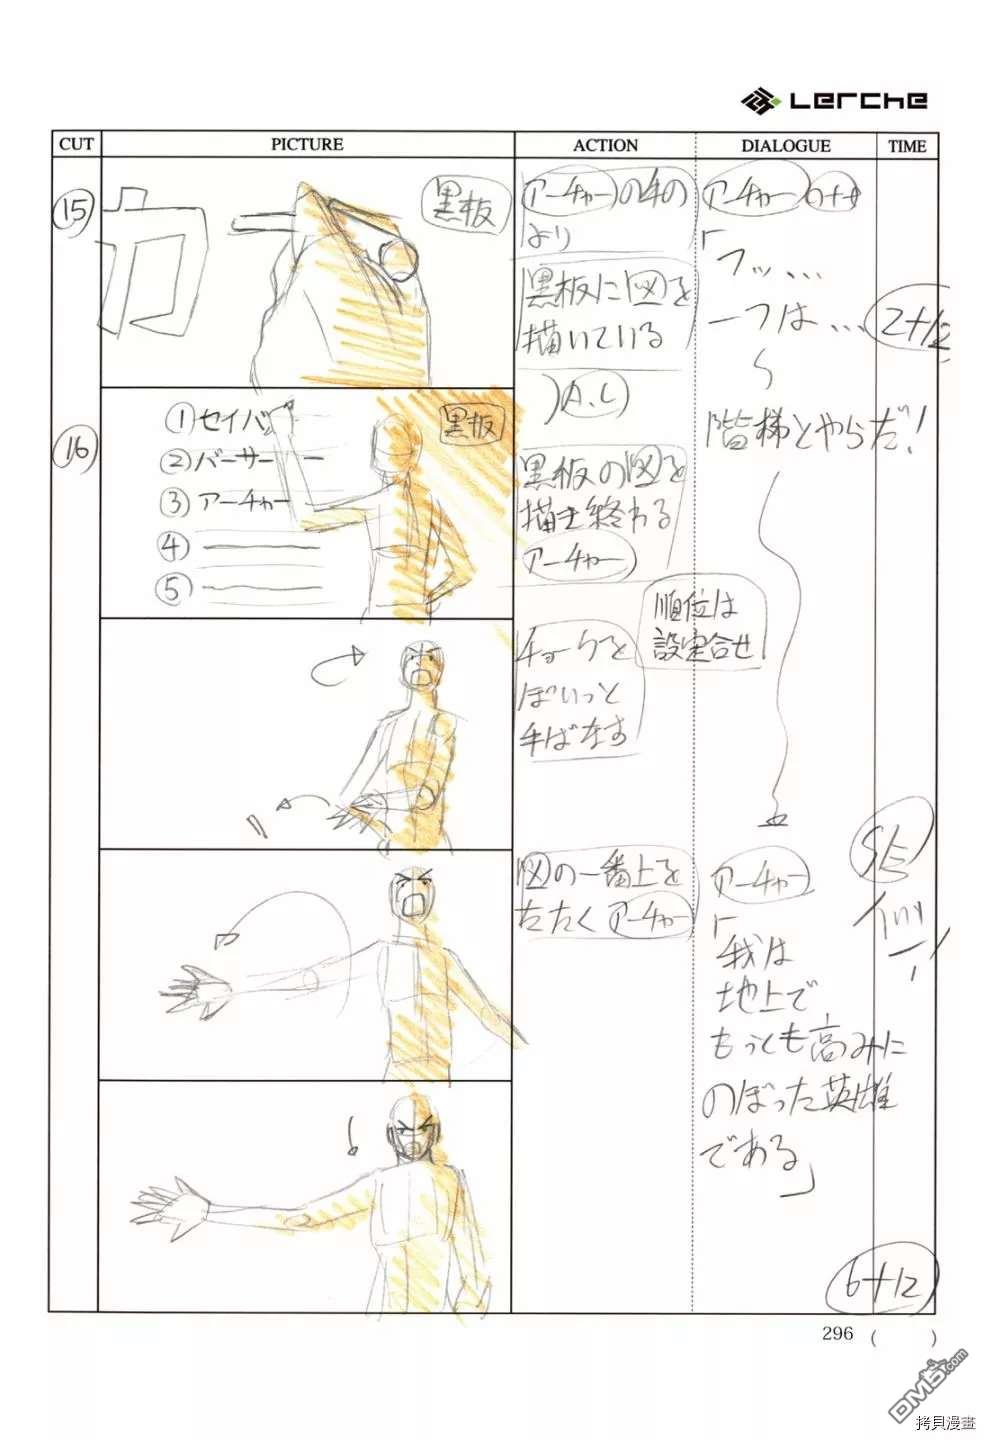 Lerche
CUT PICTURE ACTION DIALOGUE TIME
15
黒板
アーチャーの手の
より
黒板に図を
描いている
アーチャー
「フッ、、、
一つは…
階梯とやらだ!
2+12
16
黒板
①セイバー
②バーサーカー
③アーチャー
④
⑤
黒板の図を
描き終わる
アーチャー
順位は
設定合せ
チョークを
ぽいっと
手ばなす
図の一番上を
たたくアーチャー
アーチャー
「我は
地上で
もっとも高みに
のぼった英雄
である」
6+12
296 ( )
DM5.com
拷貝漫畫